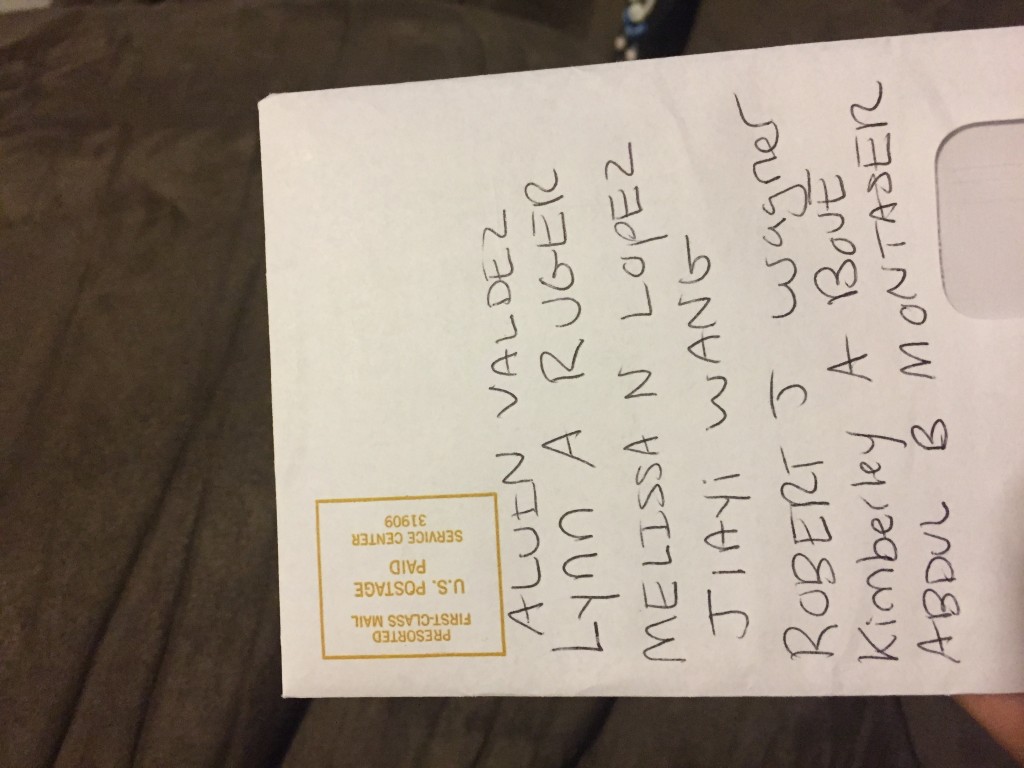 PRESORTED
FIRST-CLASS MAIL
U.S. POSTAGE
PAID
SERVICE CENTER
31909
ALVIN VALDEZ
Lynn A RUGER
MELISSA N LOPEZ
JIAYi WANG
ROBERT J Wagner
Kimberley A BOVE
ABDUL B MONTASER